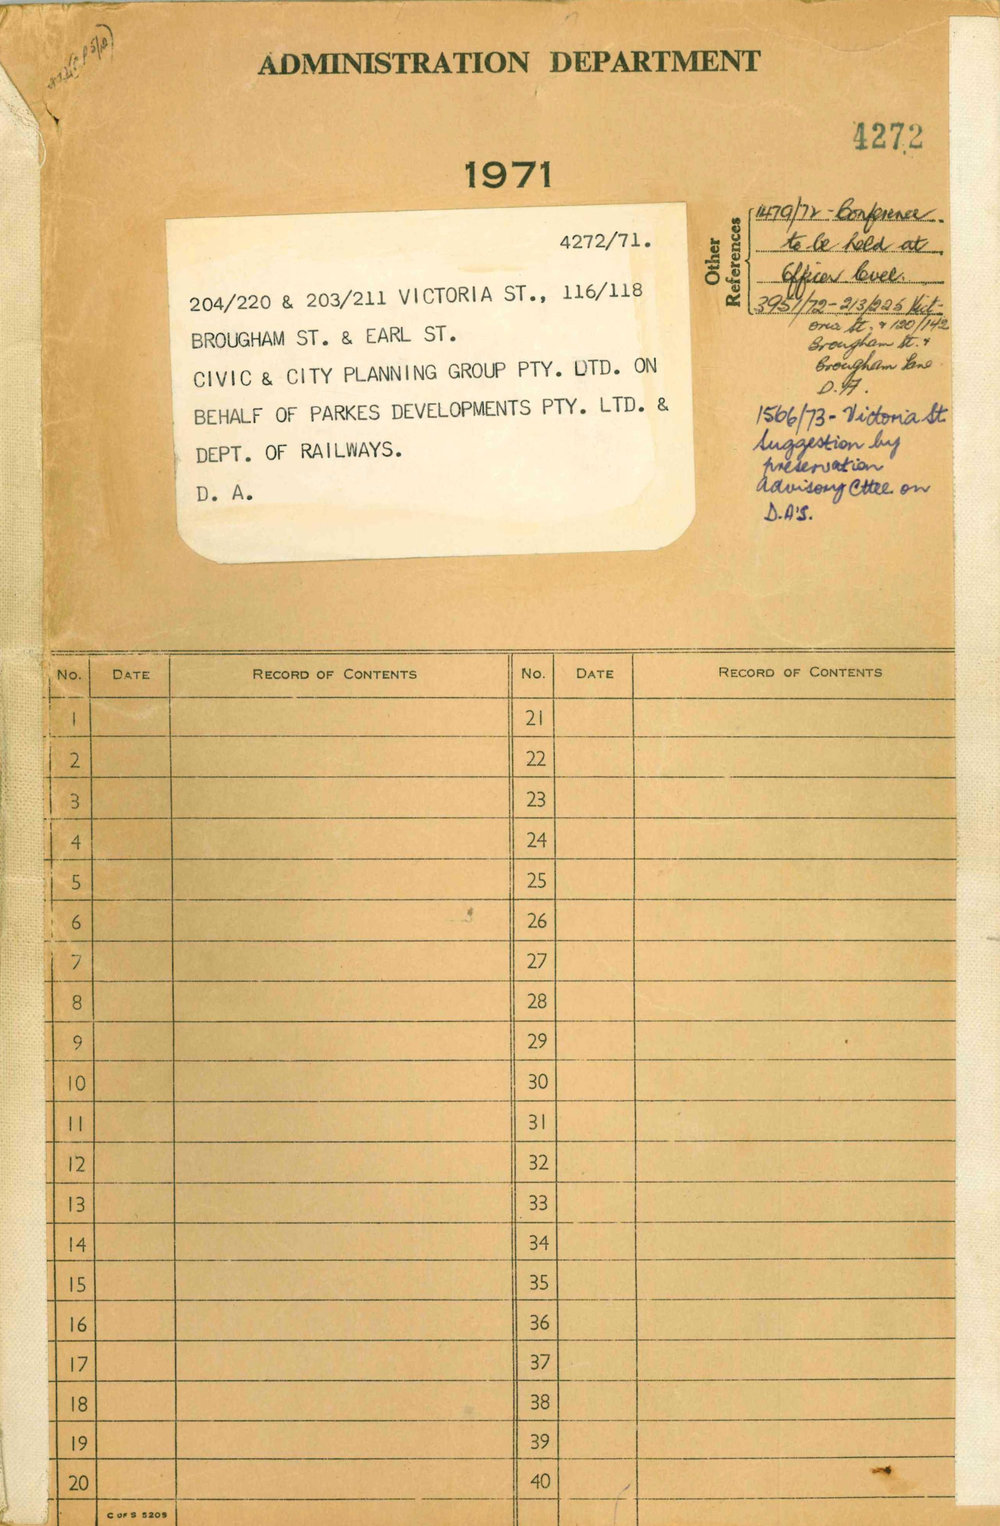 ADMINISTRATION DEPARTMENT
4272
1971
4272/71.
204/220 & 203/211 VICTORIA ST., 116/118
BROUGHAM ST. & EARL ST.
CIVIC & CITY PLANNING GROUP PTY. LTD. ON
BEHALF OF PARKES DEVELOPMENTS PTY. LTD. &
DEPT. OF RAILWAYS.
D. A.
Other
References
1479/72 - Conference
to be held at
Officer level.
3957/72 - 213/226 Vict-
oria St. & 120/142
Brougham St. &
Brougham Lane
D.A.
1566/73 - Victoria St
Suggestion by
preservation
advisory Cttee. on
D.A's.
No. DATE RECORD OF CONTENTS No. DATE RECORD OF CONTENTS
1 21
2 22
3 23
4 24
5 25
6 26
7 27
8 28
9 29
10 30
11 31
12 32
13 33
14 34
15 35
16 36
17 37
18 38
19 39
20 40
C OF S 5205